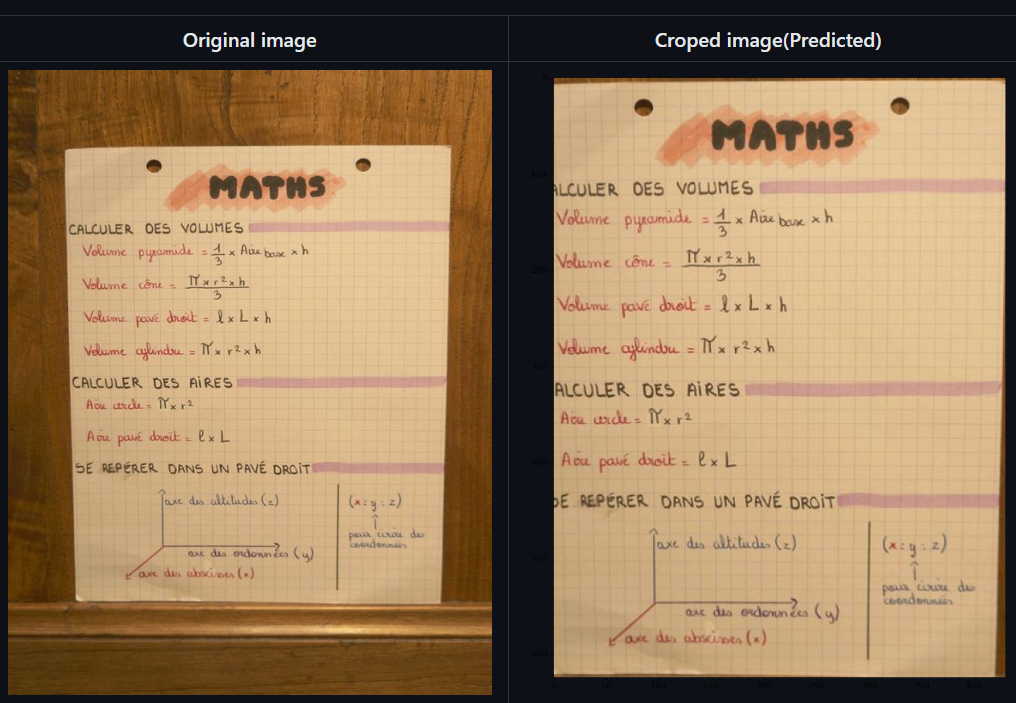 Original image
Croped image(Predicted)
MATHS
CALCULER DES VOLUMES
Volume pyramide = 1/3 × Aire base × h
Volume cône = π × r² × h / 3
Volume pavé droit = l × L × h
Volume cylindre = π × r² × h
CALCULER DES AIRES
Aire cercle = π × r²
Aire pavé droit = l × L
SE REPÉRER DANS UN PAVÉ DROIT
axe des altitudes (z)
(x : y : z)
pour écrire des
coordonnées
axe des ordonnées (y)
axe des abscisses (x)
MATHS
ALCULER DES VOLUMES
Volume pyramide = 1/3 × Aire base × h
Volume cône = π × r² × h / 3
Volume pavé droit = l × L × h
Volume cylindre = π × r² × h
ALCULER DES AIRES
Aire cercle = π × r²
Aire pavé droit = l × L
SE REPÉRER DANS UN PAVÉ DROIT
axe des altitudes (z)
(x : y : z)
pour écrire des
coordonnées
axe des ordonnées (y)
axe des abscisses (x)